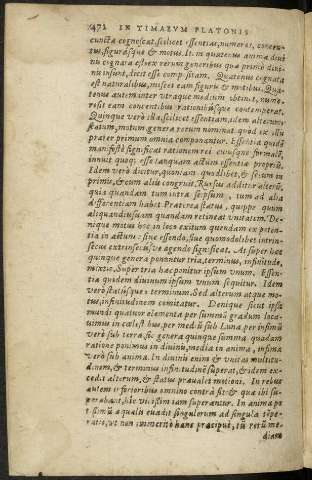 472 IN TIMAEVM PLATONIS
cuncta cognoscat, scilicet essentias, numeros, concen-
tus, figurasque & motus. It. in quatenus anima divi
nis cognata est ex rerum generibus quæ primò divi-
nis insunt, dicit esse compositam. Quatenus cognata
est naturalibus, misceri eam figuris & motibus. Qua-
tenus autem inter utraque medium obtinet, nume-
rosis eam concentibus rationibusque contemperat.
Quinque verò illa scilicet essentiam, idem alterum,
statum, motum genera rerum nominat quòd ex illis
præter primum omnia componantur. Essentia quidem
manifestè significat rationem rei cuiusque formalem,
innuit quoque esse tanquam actum essentiæ proprium.
Idem verò dicitur, quoniam quodlibet, & secum in
primis, & cum aliis congruit. Rursus additur alterum,
quia quandam tum intra seipsum, tum ad alia
differentiam habet. Præterea status, quippe quum
aliquandiu suam quandam retineat unitatem. De-
nique motus hoc in loco exitum quendam ex poten-
tia in actum: sive essendo, sive quomodolibet intrin-
secus extrinsecusve agendo significat. At super hæc
quinque genera ponuntur tria, terminus, infinitudo,
mixtio, Super tria hæc ponitur ipsum unum. Essen-
tia quidem divinum ipsum unum sequitur. Idem
verò statusque: terminum. Sed alterum atque mo-
tus, infinitudinem comitatur. Denique sicut ipsa
mundi quatuor elementa per summum gradum loca-
vimus in cælestibus, per medium sub Luna, per infimum
verò sub terra, sic genera quinque summa quadam
ratione ponimus in divinis, media in anima, infima
verò sub anima. In divinis enim & unitas multitu-
dinem, & terminus infinitudinem superat, & idem ex-
cedit alterum, & status prævalet motioni. In rebus
autem inferioribus omnino contrà fit: & quæ ibi su-
perabant, hîc vicissim iam superantur. In anima po
tissimum æqualis evadit singulorum ad singula tempe-
ratio, ut non immeritò hanc præcipuè, tum rerum me-
diam